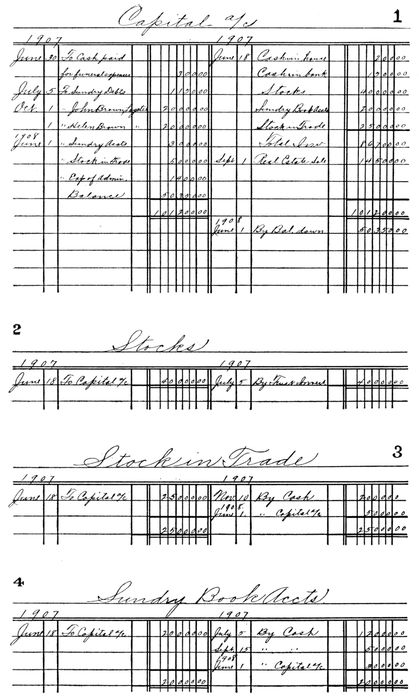 Capital a/c 1
1907 1907
June 20 To Cash paid June 18 Cash in house 20000
for funeral expenses 30000 Cash in bank 150000
July 5 To Sundry Debts 115000 Stocks 4000000
Oct. 1 " John Brown Legatee 2000000 Sundry Book Accts 2000000
1 " Helen Brown " 2000000 Stock in Trade 2500000
1908
June 1 " Sundry Accts 300000 Total Inv 8670000
" Stock in trade 500000 Sept 1 Real Estate Sale 1450000
" Exp of Admin. 140000
Balance 5035000
10120000 10120000
1908
June 1 By Bal. down 5035000
2
Stocks
1907 1907
June 18 To Capital a/c 4000000 July 5 By 4000000
Stock in Trade 3
1907 1907
June 18 To Capital a/c 2500000 Nov 10 By Cash 2000000
1908
June 1 " Capital a/c 500000
2500000 2500000
4
Sundry Book Accts
1907 1907
June 18 To Capital a/c 2000000 July 5 By Cash 1200000
Sept. 15 " " 500000
1908
June 1 " Capital a/c 300000
2000000 2000000